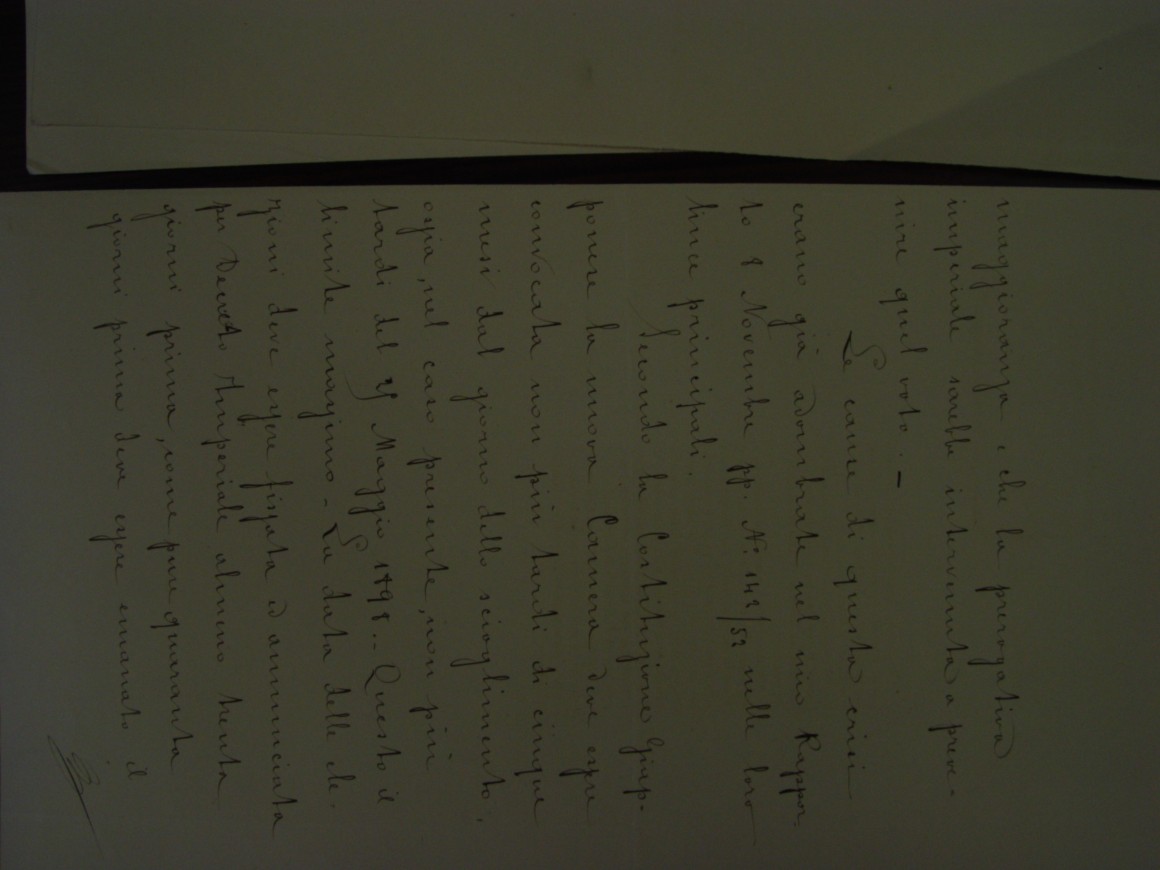 maggioranza e che la prerogativa
imperiale sarebbe intervenuta a preve-
nire quel voto. –
Le cause di questa crisi
erano già adombrate nel mio Rappor-
to 8 Novembre pp. N: 142/52 nelle loro
linee principali.
Secondo la Costituzione Giap-
ponese la nuova Camera deve essere
convocata non più tardi di cinque
mesi dal giorno dello scioglimento,
ossia, nel caso presente, non più
tardi del 25 Maggio 1898 – Questo il
limite massimo – La data delle ele-
zioni deve essere fissata ed annunciata
per Decreto Imperiale almeno trenta
giorni prima, come pure quaranta
giorni prima deve essere emanato il